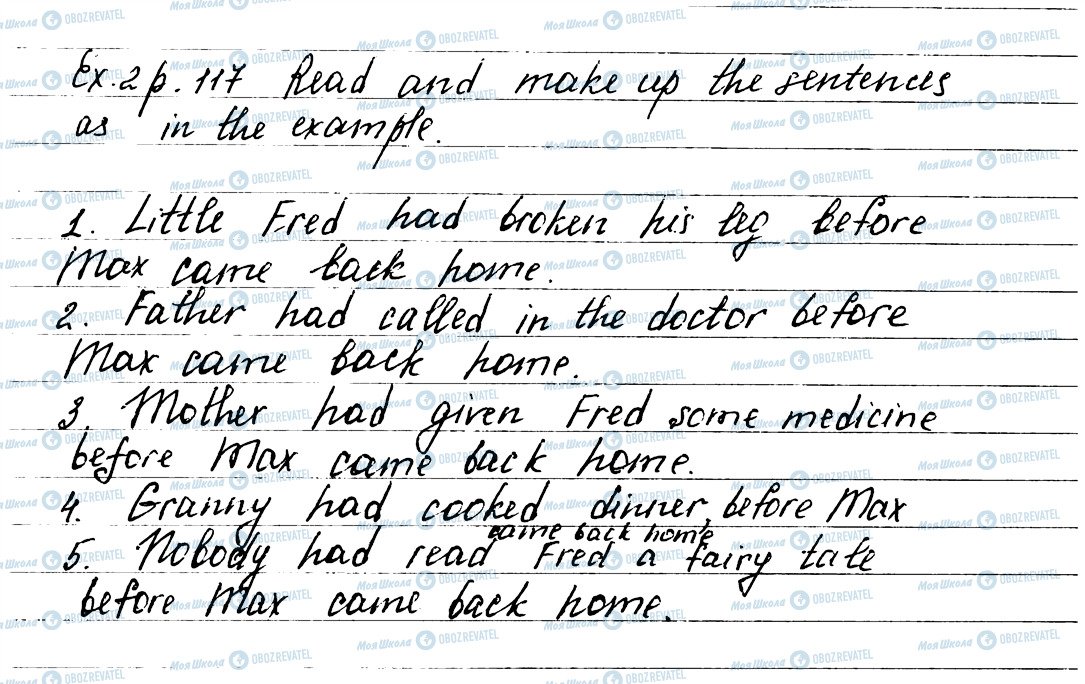 Ex. 2 p. 117 Read and make up the sentences
as in the example.
1. Little Fred had broken his leg before
Max came back home.
2. Father had called in the doctor before
Max came back home.
3. Mother had given Fred some medicine
before Max came back home.
4. Granny had cooked dinner, before Max
came back home
5. Nobody had read Fred a fairy tale
before Max came back home.